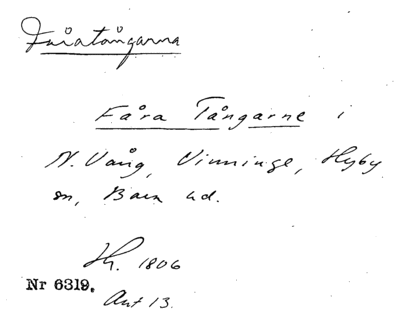 Fåratångarna
Fåra Tångarne i
N. Vång, Vinninge, Hyby
sn, Bara hd.
Sk. 1806
Nr 6319.
Akt 13.